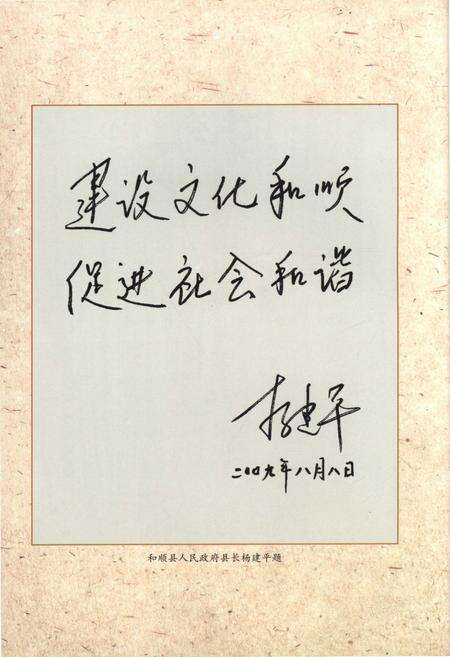 建设文化和顺
促进社会和谐
杨建平
二〇〇九年八月八日
和顺县人民政府县长杨建平题